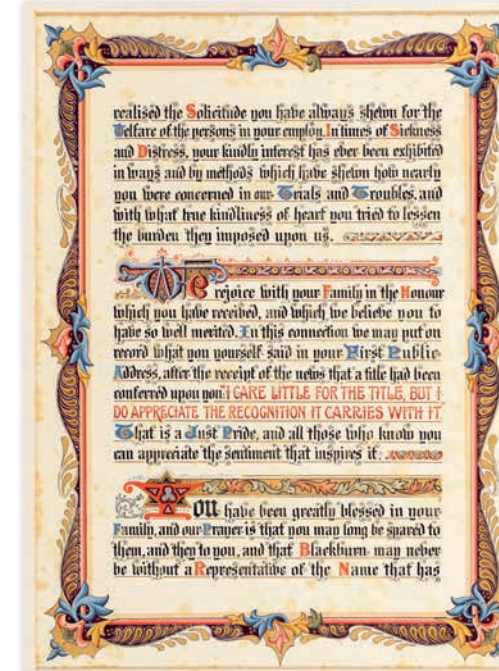 realised the Solicitude you have always shewn for the
Welfare of the persons in your employ. In times of Sickness
and Distress, your kindly interest has ever been exhibited
in ways and by methods which have shewn how nearly
you were concerned in our Trials and Troubles, and
with what true kindliness of heart you tried to lessen
the burden they imposed upon us.
WE rejoice with your Family in the Honour
which you have received, and which we believe you to
have so well merited. In this connection we may put on
record what you yourself said in your First Public
Address, after the receipt of the news that a title had been
conferred upon you: "I CARE LITTLE FOR THE TITLE, BUT I
DO APPRECIATE THE RECOGNITION IT CARRIES WITH IT.
That is a Just Pride, and all those who know you
can appreciate the sentiment that inspires it.
YOU have been greatly blessed in your
Family, and our Prayer is that you may long be spared to
them, and they to you, and that Blackburn may never
be without a Representative of the Name that has